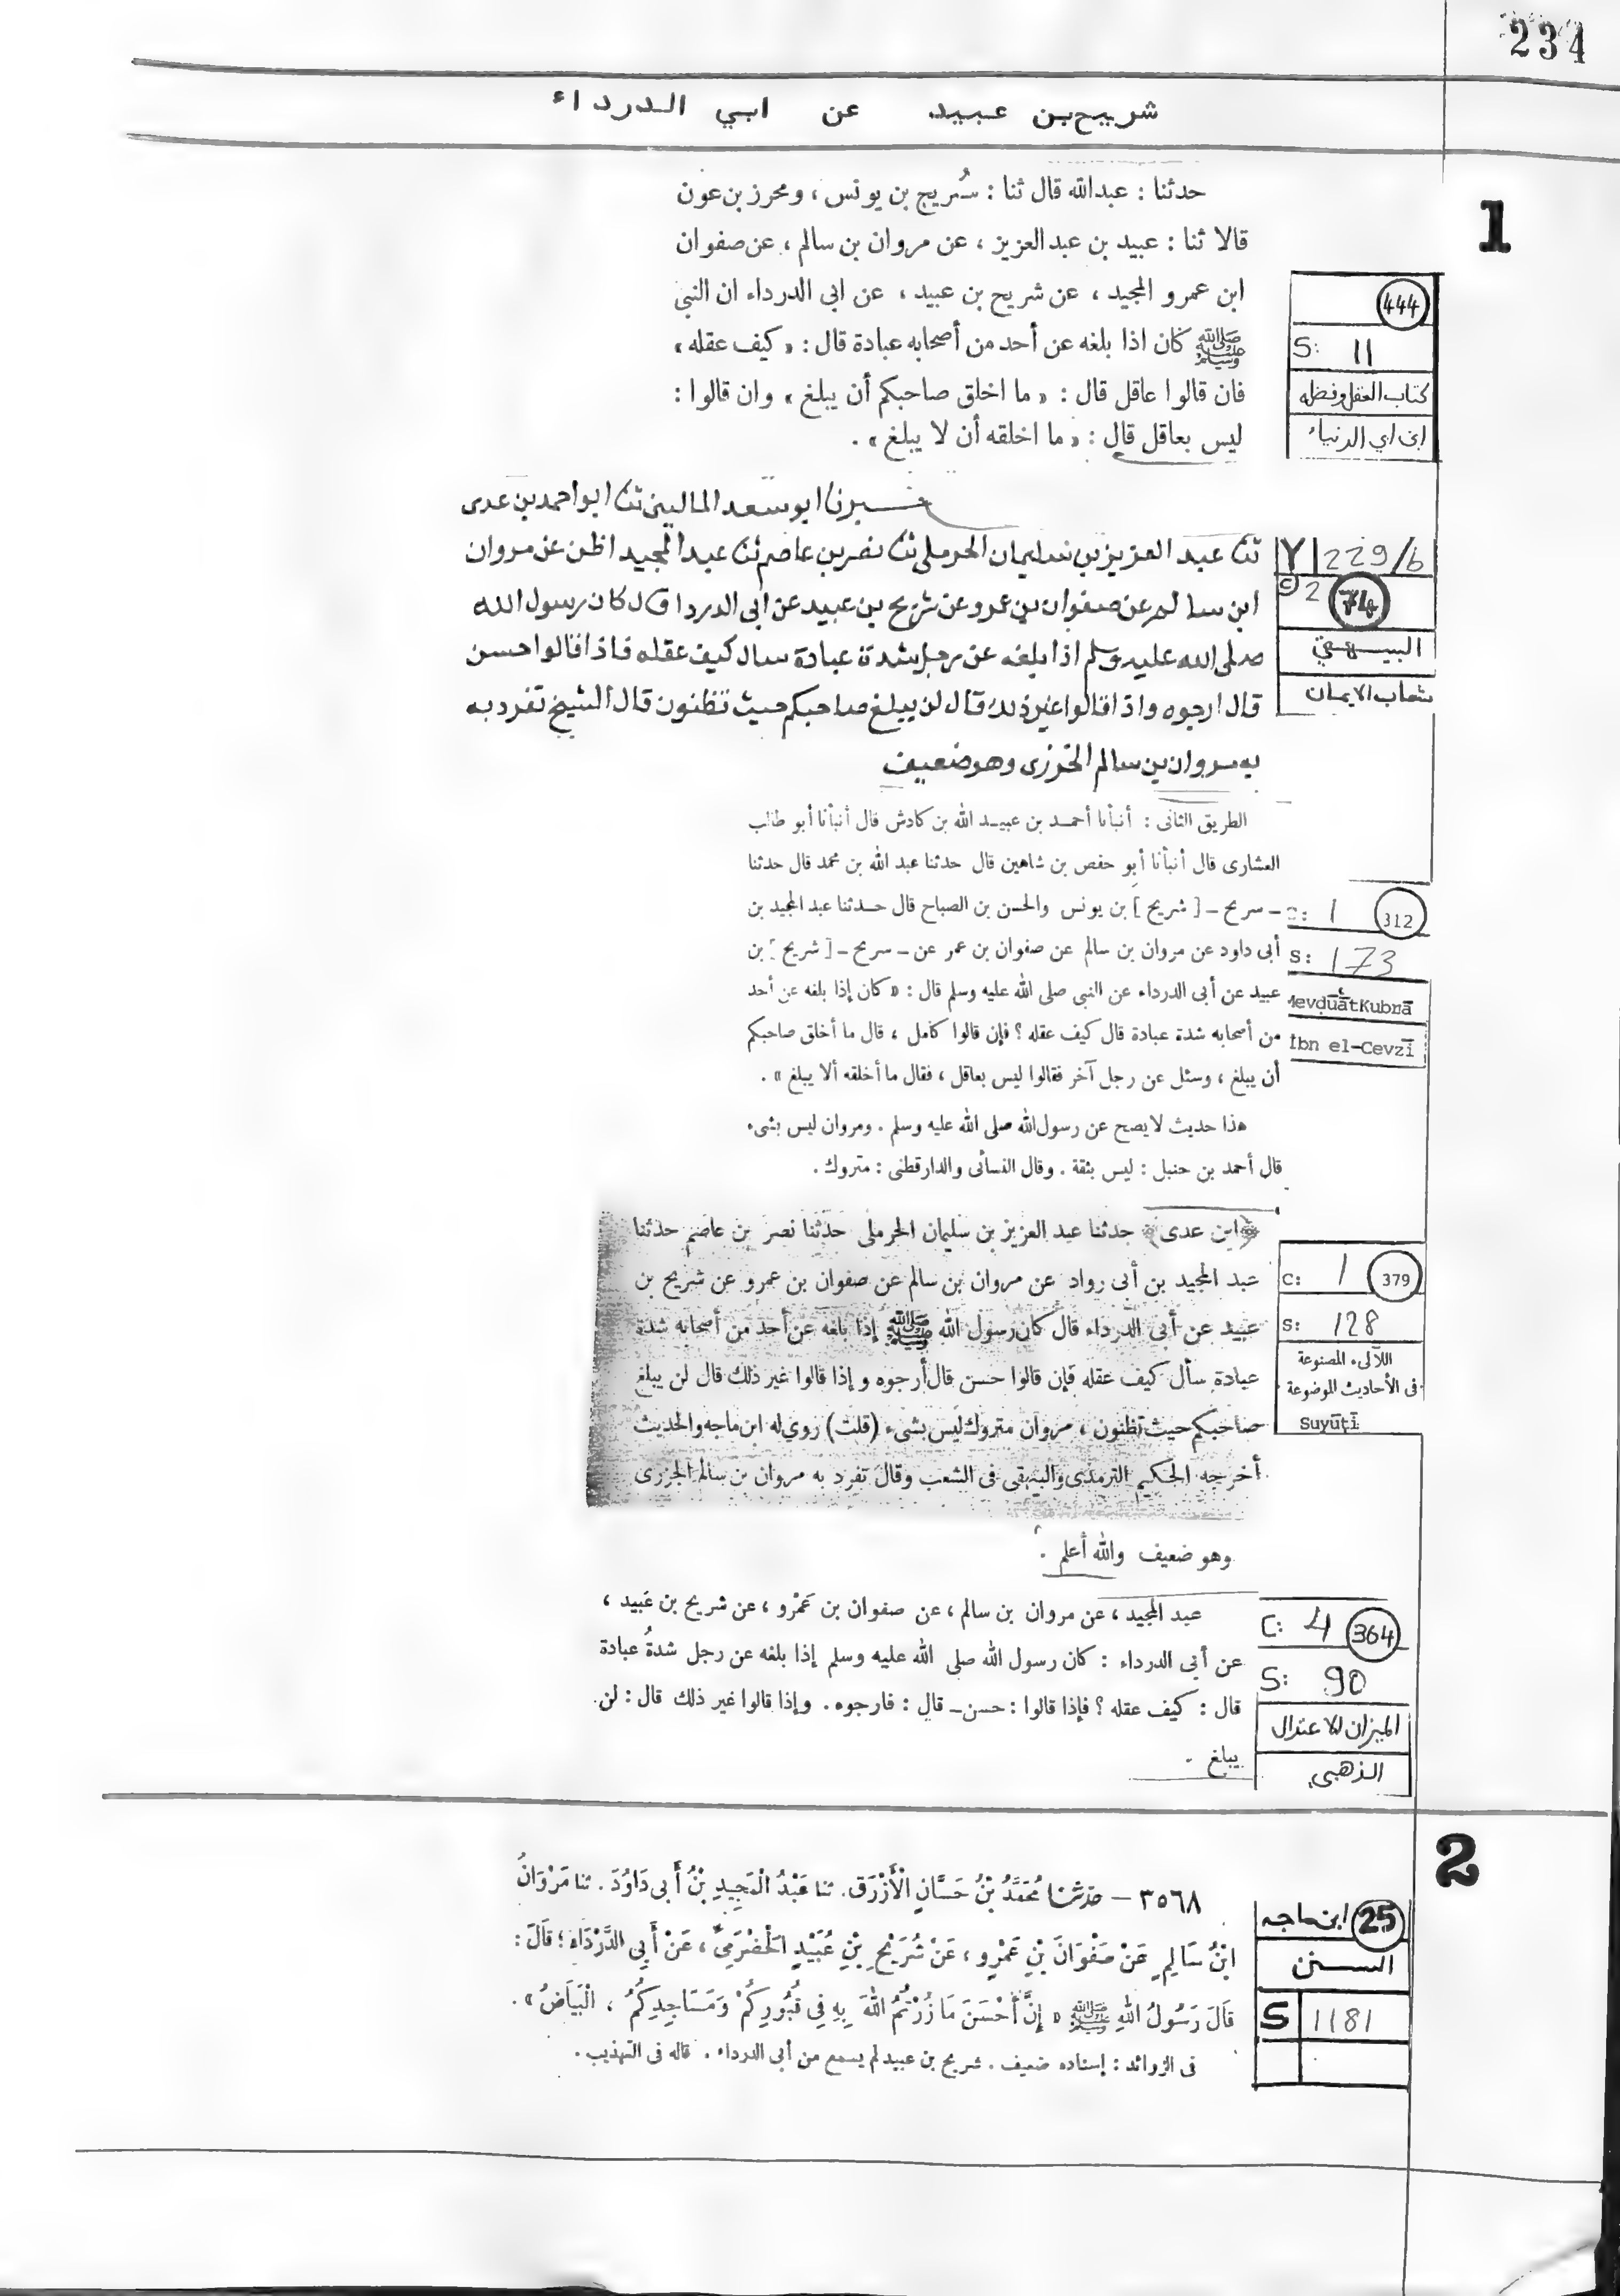 234
شريح بن عبيد عن ابي الدرداء
1
حدثنا : عبدالله قال ثنا : سُريج بن يونس ، ومحرز بن عون
قالا ثنا : عبيد بن عبد العزيز ، عن مروان بن سالم ، عن صفوان
ابن عمرو المجيد ، عن شريح بن عبيد ، عن ابي الدرداء ان النبي
ﷺ كان اذا بلغه عن أحد من أصحابه عبادة قال : « كيف عقله »
فان قالوا عاقل قال : « ما اخلق صاحبكم أن يبلغ » وان قالوا :
ليس بعاقل قال : « ما اخلقه أن لا يبلغ » .
444
S: 11
كتاب العقل وفضله
ابن ابي الدنيا
ابو سعد الماليني ثنا ابو احمد بن عدى
ثنا عبد العزيز بن سليمان الحرملي ثنا نصر بن عاصم ثنا عبد المجيد اظن عن مروان
ابن سالم عن صفوان بن عمرو عن شريح بن عبيد عن ابى الدردا قال كان رسول الله
صلى الله عليه وسلم اذا بلغه عن رجل شدة عبادة سال كيف عقله فاذا قالوا حسن
قال ارجوه واذا قالوا غير ذلك قال لن يبلغ صاحبكم حيث تظنون قال الشيخ تفرد به
به مروان بن سالم الجزرى وهو ضعيف
Y 229/b
2 74
البيهقي
شعاب الايمان
الطريق الثانى : أنبأنا أحمد بن عبيد الله بن كادش قال أنبأنا أبو طالب
العشارى قال أنبأنا أبو حفص بن شاهين قال حدثنا عبد الله بن محمد قال حدثنا
– سريح – [ شريح ] بن يونس والحسن بن الصباح قال حدثنا عبد المجيد بن
أبى داود عن مروان بن سالم عن صفوان بن عمر عن – سريح – [ شريح ] بن
عبيد عن أبى الدرداء عن النبى صلى الله عليه وسلم قال : « كان إذا بلغه عن أحد
من أصحابه شدة عبادة قال كيف عقله ؟ فإن قالوا كامل ، قال ما أخلق صاحبكم
أن يبلغ ، وسئل عن رجل آخر فقالوا ليس بعاقل ، فقال ما أخلقه ألا يبلغ » .
هذا حديث لا يصح عن رسول الله صلى الله عليه وسلم . ومروان ليس بشىء
قال أحمد بن حنبل : ليس بثقة . وقال النسائى والدارقطنى : متروك .
: 1 312
S: 173
Mevḍuāt Kubrā
İbn el-Cevzī
﴿ابن عدى﴾ حدثنا عبد العزيز بن سليمان الحرملى حدثنا نصر بن عاصم حدثنا
عبد المجيد بن أبى رواد عن مروان بن سالم عن صفوان بن عمرو عن شريح بن
عبيد عن أبى الدرداء قال كان رسول الله ﷺ إذا بلغه عن أحد من أصحابه شدة
عبادة سأل كيف عقله فإن قالوا حسن قال أرجوه و إذا قالوا غير ذلك قال لن يبلغ
صاحبكم حيث تظنون ، مروان متروك ليس بشىء (قلت) روى له ابن ماجه والحديث
أخرجه الحكيم الترمذى والبيهقى فى الشعب وقال تفرد به مروان بن سالم الجزرى
وهو ضعيف والله أعلم .
C: 1 379
S: 128
اللآلىء المصنوعة
فى الأحاديث الموضوعة
Suyūṭī
عبد المجيد ، عن مروان بن سالم ، عن صفوان بن عَمْرو ، عن شريح بن عُبيد ،
عن أبى الدرداء : كان رسول الله صلى الله عليه وسلم إذا بلغه عن رجل شدةُ عبادة
قال : كيف عقله ؟ فإذا قالوا : حسن – قال : فارجوه . وإذا قالوا غير ذلك قال : لن
يبلغ .
C: 4 364
S: 90
الميزان للاعتدال
الذهبي
2
٣٥٦٨ – حدثنا مُحَمَّدُ بْنُ حَسَّانٍ الْأَزْرَقُ . ثنا عَبْدُ الْمَجِيدِ بْنُ أَبِى دَاوُدَ . ثنا مَرْوَانُ
ابْنُ سَالِمٍ عَنْ صَفْوَانَ بْنِ عَمْرٍو ، عَنْ شُرَيْحِ بْنِ عُبَيْدٍ الْحَضْرَمِىِّ ، عَنْ أَبِى الدَّرْدَاءِ ؛ قَالَ :
قَالَ رَسُولُ اللهِ ﷺ « إِنَّ أَحْسَنَ مَا زُرْتُمُ اللهَ بِهِ فِى قُبُورِكُمْ وَمَسَاجِدِكُمُ ، الْبَيَاضُ » .
فى الزوائد : إسناده ضعيف . شريح بن عبيد لم يسمع من أبى الدرداء . قاله فى التهذيب .
25 ابن ماجه
السنن
S 1181